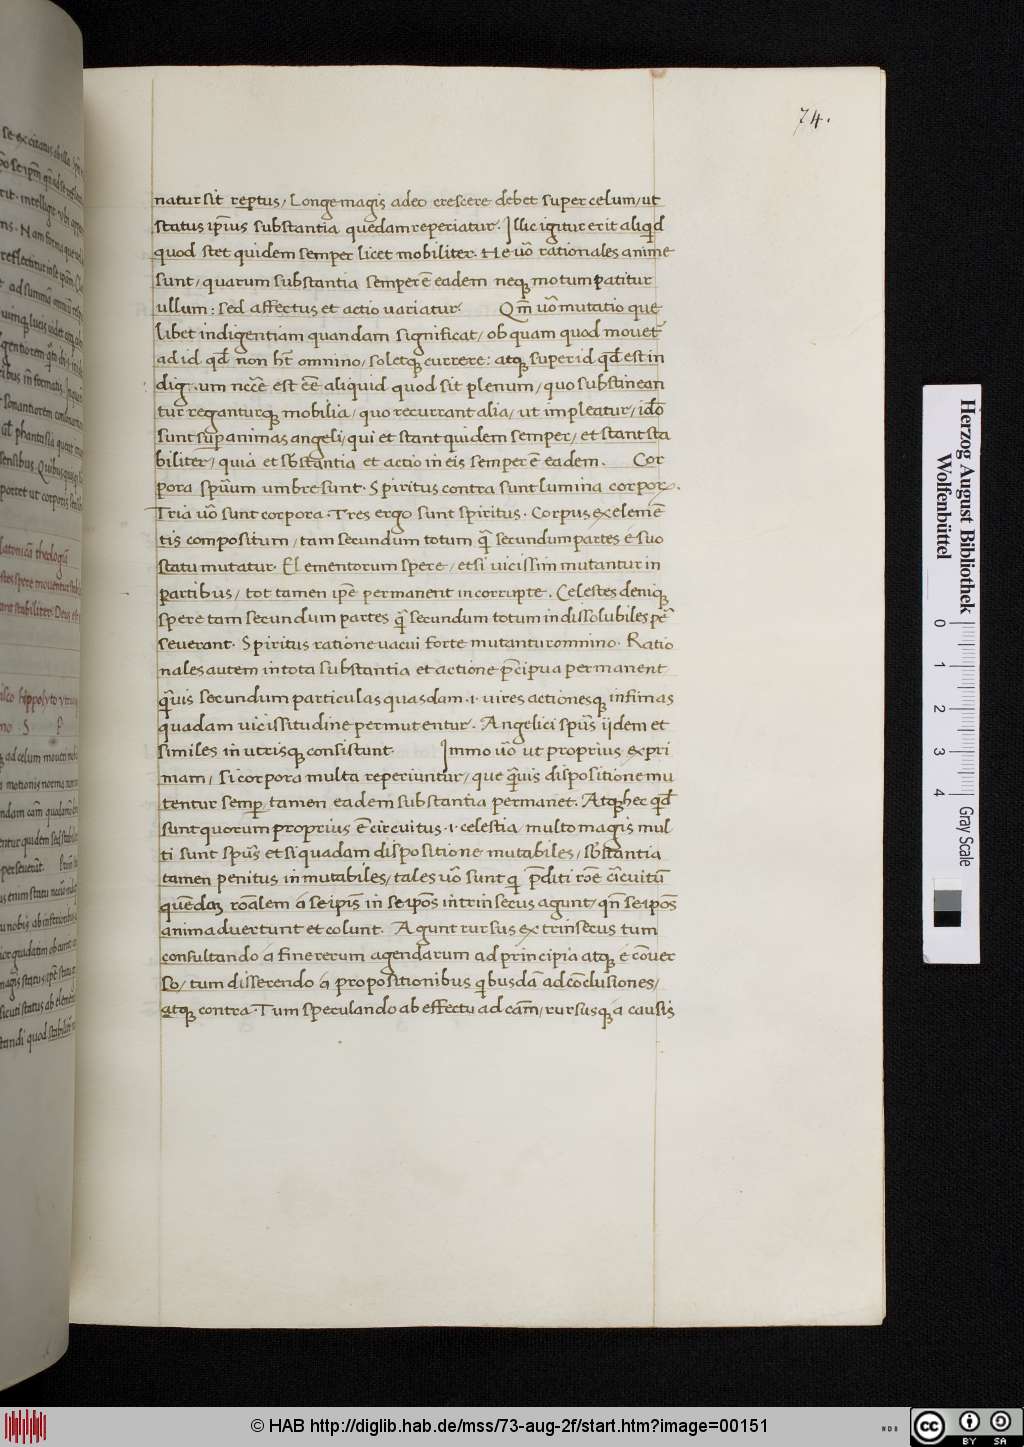 74.
natur sit reptus, Longe magis adeo crescere debet super celum, ut
status ip̄ius substantia quedam reperiatur. Illic igitur erit aliq̄d
quod stet quidem semper licet mobiliter. He uō rationales anime
sunt, quarum substantia semper ē eadem neq; motum patitur
ullum: sed affectus et actio uariatur. Qm̄ uō mutatio que
libet indigentiam quandam significat, ob quam quod mouet̄
ad id qd̄ non ht̄ omnino, soletq; currere: atq; super id qd̄ est in
dig um necc̄e est ēē aliquid quod sit plenum, quo substinean
tur reganturq; mobilia, quo recurrant alia, ut impleatur, idō
sunt sup̄ animas angeli, qui et stant quidem semper, et stant sta
biliter, quia et sb̄stantia et actio in eis semper ē eadem. Cor
pora sp̄uum umbre sunt. Spiritus contra sunt lumina corpoꝝ.
Tria uō sunt corpora. Tres ergo sunt spiritus. Corpus ex elemē
tis compositum, tam secundum totum q̄ secundum partes é suo
statu mutatur. Elementorum spere, etsi uicissim mutantur in
partibus, tot tamen ip̄e permanent incorrupte. Celestes deniq;
spere tam secundum partes q̄ secundum totum indissolubiles pē
seuerant. Spiritus ratione uacui forte mutantur omnino. Ratio
nales autem in tota substantia et actione p̄cipua permanent
q̄uis secundum particulas quasdam .i. uires actionesq; infimas
quadam uicissitudine permutentur. Angelici sp̄us ijdem et
similes in utrisq; consistunt. Immo uō ut proprius expri
mam, si corpora multa reperiuntur, que q̄uis dispositione mu
tentur semp̄ tamen eadem substantia permanet. Atq; hec qd̄
sunt quorum proprius ē circuitus .i. celestia, multo magis mul
ti sunt sp̄us etsi quadam dispositione mutabiles, sb̄stantia
tamen penitus inmutabiles, tales uō sunt qi p̄diti rōe circuitū
quēdaꝫ rōalem á seip̄is in seip̄os intrinsecus agunt, qn̄ seip̄os
animaduertunt et colunt. Agunt rursus extrinsecus tum
consultando á fine rerum agendarum ad principia atq; é cōuer
so, tum disserendo á propositionibus qibusdā ad cōclusiones,
atq; contra. Tum speculando ab effectu ad cām, rursusq; á causis
Herzog August Bibliothek
Wolfenbüttel
0 1 2 3 4
Gray Scale
© HAB http://diglib.hab.de/mss/73-aug-2f/start.htm?image=00151
WDB
cc BY SA